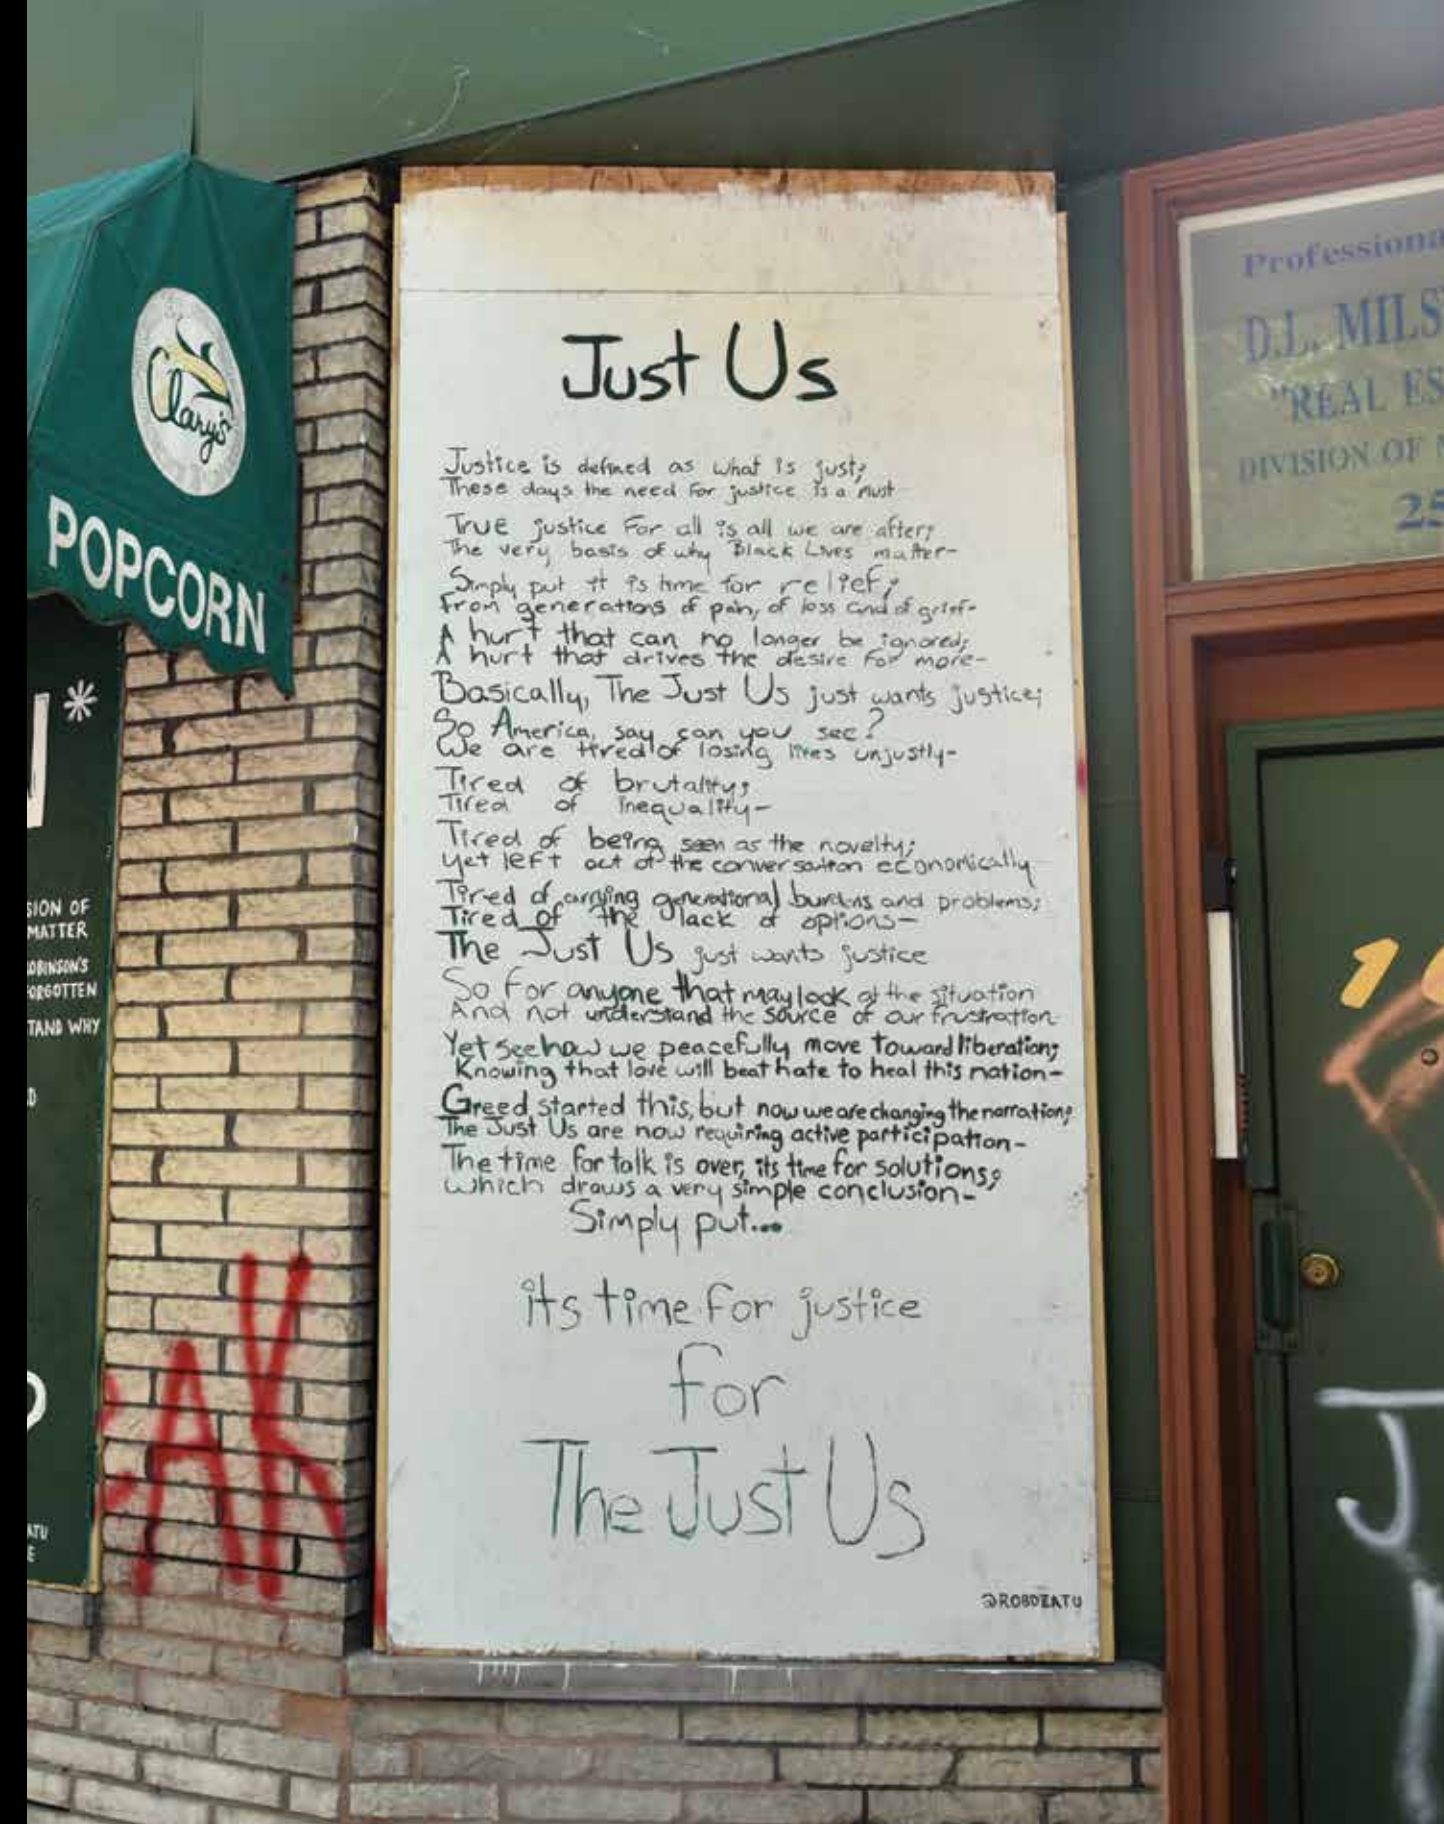 Clary's
POPCORN
*
SION OF
MATTER
OBINSON'S
ORGOTTEN
TAND WHY
D
ATU
E
AK
Just Us
Justice is defined as what is just;
These days the need for justice is a must
True justice For all is all we are after;
The very basis of why Black Lives matter-
Simply put it is time for relief;
From generations of pain, of loss and of grief-
A hurt that can no longer be ignored;
A hurt that drives the desire for more-
Basically, The Just Us just wants justice;
So America, say can you see?
We are tired of losing lives unjustly-
Tired of brutality;
Tired of inequality-
Tired of being seen as the novelty;
yet left out of the conversation economically
Tired of carrying generational burdens and problems;
Tired of the lack of options-
The Just Us just wants justice
So for anyone that may look at the situation
And not understand the source of our frustration
Yet see how we peacefully move toward liberation;
Knowing that love will beat hate to heal this nation-
Greed started this, but now we are changing the narration;
The Just Us are now requiring active participation-
The time for talk is over, its time for solutions;
which draws a very simple conclusion-
Simply put...
its time for justice
for
The Just Us
@ROBDZATU
Professiona
D.L. MILS
"REAL ES
DIVISION OF
25
1
J